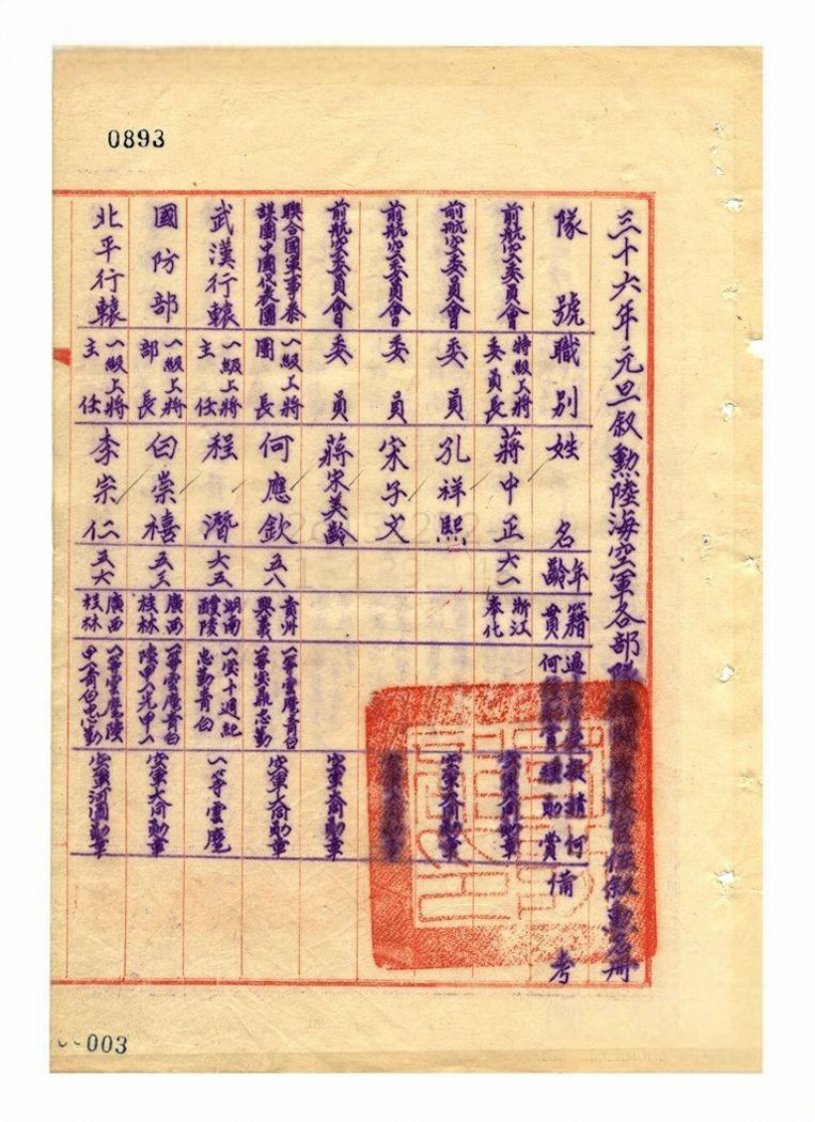 0893
三十六年元旦敘勲陸海空軍各部隊
官佐敘勲名冊
隊號 職別 姓名 年齡 籍貫 過去 何 賞 擬請何 勛賞 備考
前航空委員會 特級上將 委員長 蔣中正 六一 浙江 奉化 空軍大同勛章
前航空委員會 委員 孔祥熙 空軍大同勛章
前航空委員會 委員 宋子文
前航空委員會 委員 蔣宋美齡 空軍大同勛章
聯合國軍事參謀團中國代表團 一級上將 團長 何應欽 五八 貴州 興義 一等雲麾青白 一等寶鼎忠勤 空軍大同勛章
武漢行轅 一級上將 主任 程潛 六五 湖南 醴陵 一寶十週紀 忠勤青白 一等雲麾
國防部 一級上將 部長 白崇禧 五三 廣西 桂林 一等雲麾青白 陸甲一光甲一 空軍大同勛章
北平行轅 一級上將 主任 李宗仁 五六 廣西 桂林 一等雲麾陸 甲一青白忠勤 空軍河圖勛章
003